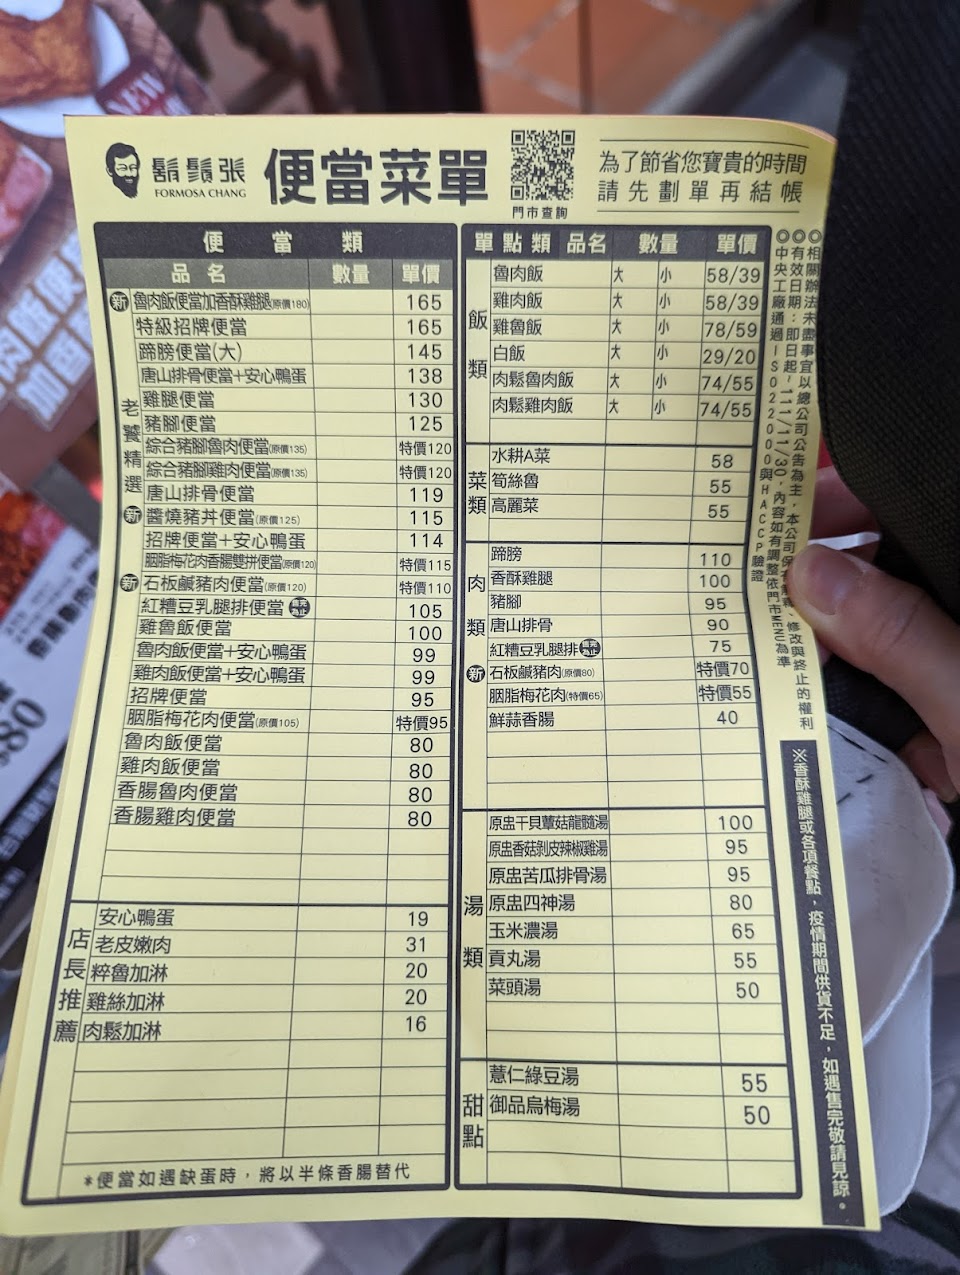 NEW
鬍鬚張
FORMOSA CHANG
便當菜單
門市查詢
為了節省您寶貴的時間
請先劃單再結帳
便當類
品名 數量 單價
老饕精選
新 魯肉飯便當加香酥雞腿(原價180) 165
特級招牌便當 165
蹄膀便當(大) 145
唐山排骨便當+安心鴨蛋 138
雞腿便當 130
豬腳便當 125
綜合豬腳魯肉便當(原價135) 特價120
綜合豬腳雞肉便當(原價135) 特價120
唐山排骨便當 119
新 醬燒豬丼便當(原價125) 115
招牌便當+安心鴨蛋 114
胭脂梅花肉香腸雙拼便當(原價120) 特價115
新 石板鹹豬肉便當(原價120) 特價110
紅糟豆乳腿排便當 105
雞魯飯便當 100
魯肉飯便當+安心鴨蛋 99
雞肉飯便當+安心鴨蛋 99
招牌便當 95
胭脂梅花肉便當(原價105) 特價95
魯肉飯便當 80
雞肉飯便當 80
香腸魯肉便當 80
香腸雞肉便當 80
店長推薦
安心鴨蛋 19
老皮嫩肉 31
粹魯加淋 20
雞絲加淋 20
肉鬆加淋 16
*便當如遇缺蛋時，將以半條香腸替代
單點類 品名 數量 單價
飯類
魯肉飯 大 小 58/39
雞肉飯 大 小 58/39
雞魯飯 大 小 78/59
白飯 大 小 29/20
肉鬆魯肉飯 大 小 74/55
肉鬆雞肉飯 大 小 74/55
菜類
水耕A菜 58
筍絲魯 55
高麗菜 55
肉類
蹄膀 110
香酥雞腿 100
豬腳 95
唐山排骨 90
紅糟豆乳腿排 75
新 石板鹹豬肉(原價80) 特價70
胭脂梅花肉(特價65) 特價55
鮮蒜香腸 40
湯類
原盅干貝蕈菇龍髓湯 100
原盅香菇剝皮辣椒雞湯 95
原盅苦瓜排骨湯 95
原盅四神湯 80
玉米濃湯 65
貢丸湯 55
菜頭湯 50
甜點
薏仁綠豆湯 55
御品烏梅湯 50
◎相關辦法未盡事宜以總公司公告為主，本公司保有 修改與終止的權利
◎有效日期：即日起~111/11/30，內容如有調整依門市MENU為準
◎中央工廠通過ISO22000與HACCP驗證
※香酥雞腿或各項餐點，疫情期間供貨不足，如遇售完敬請見諒。